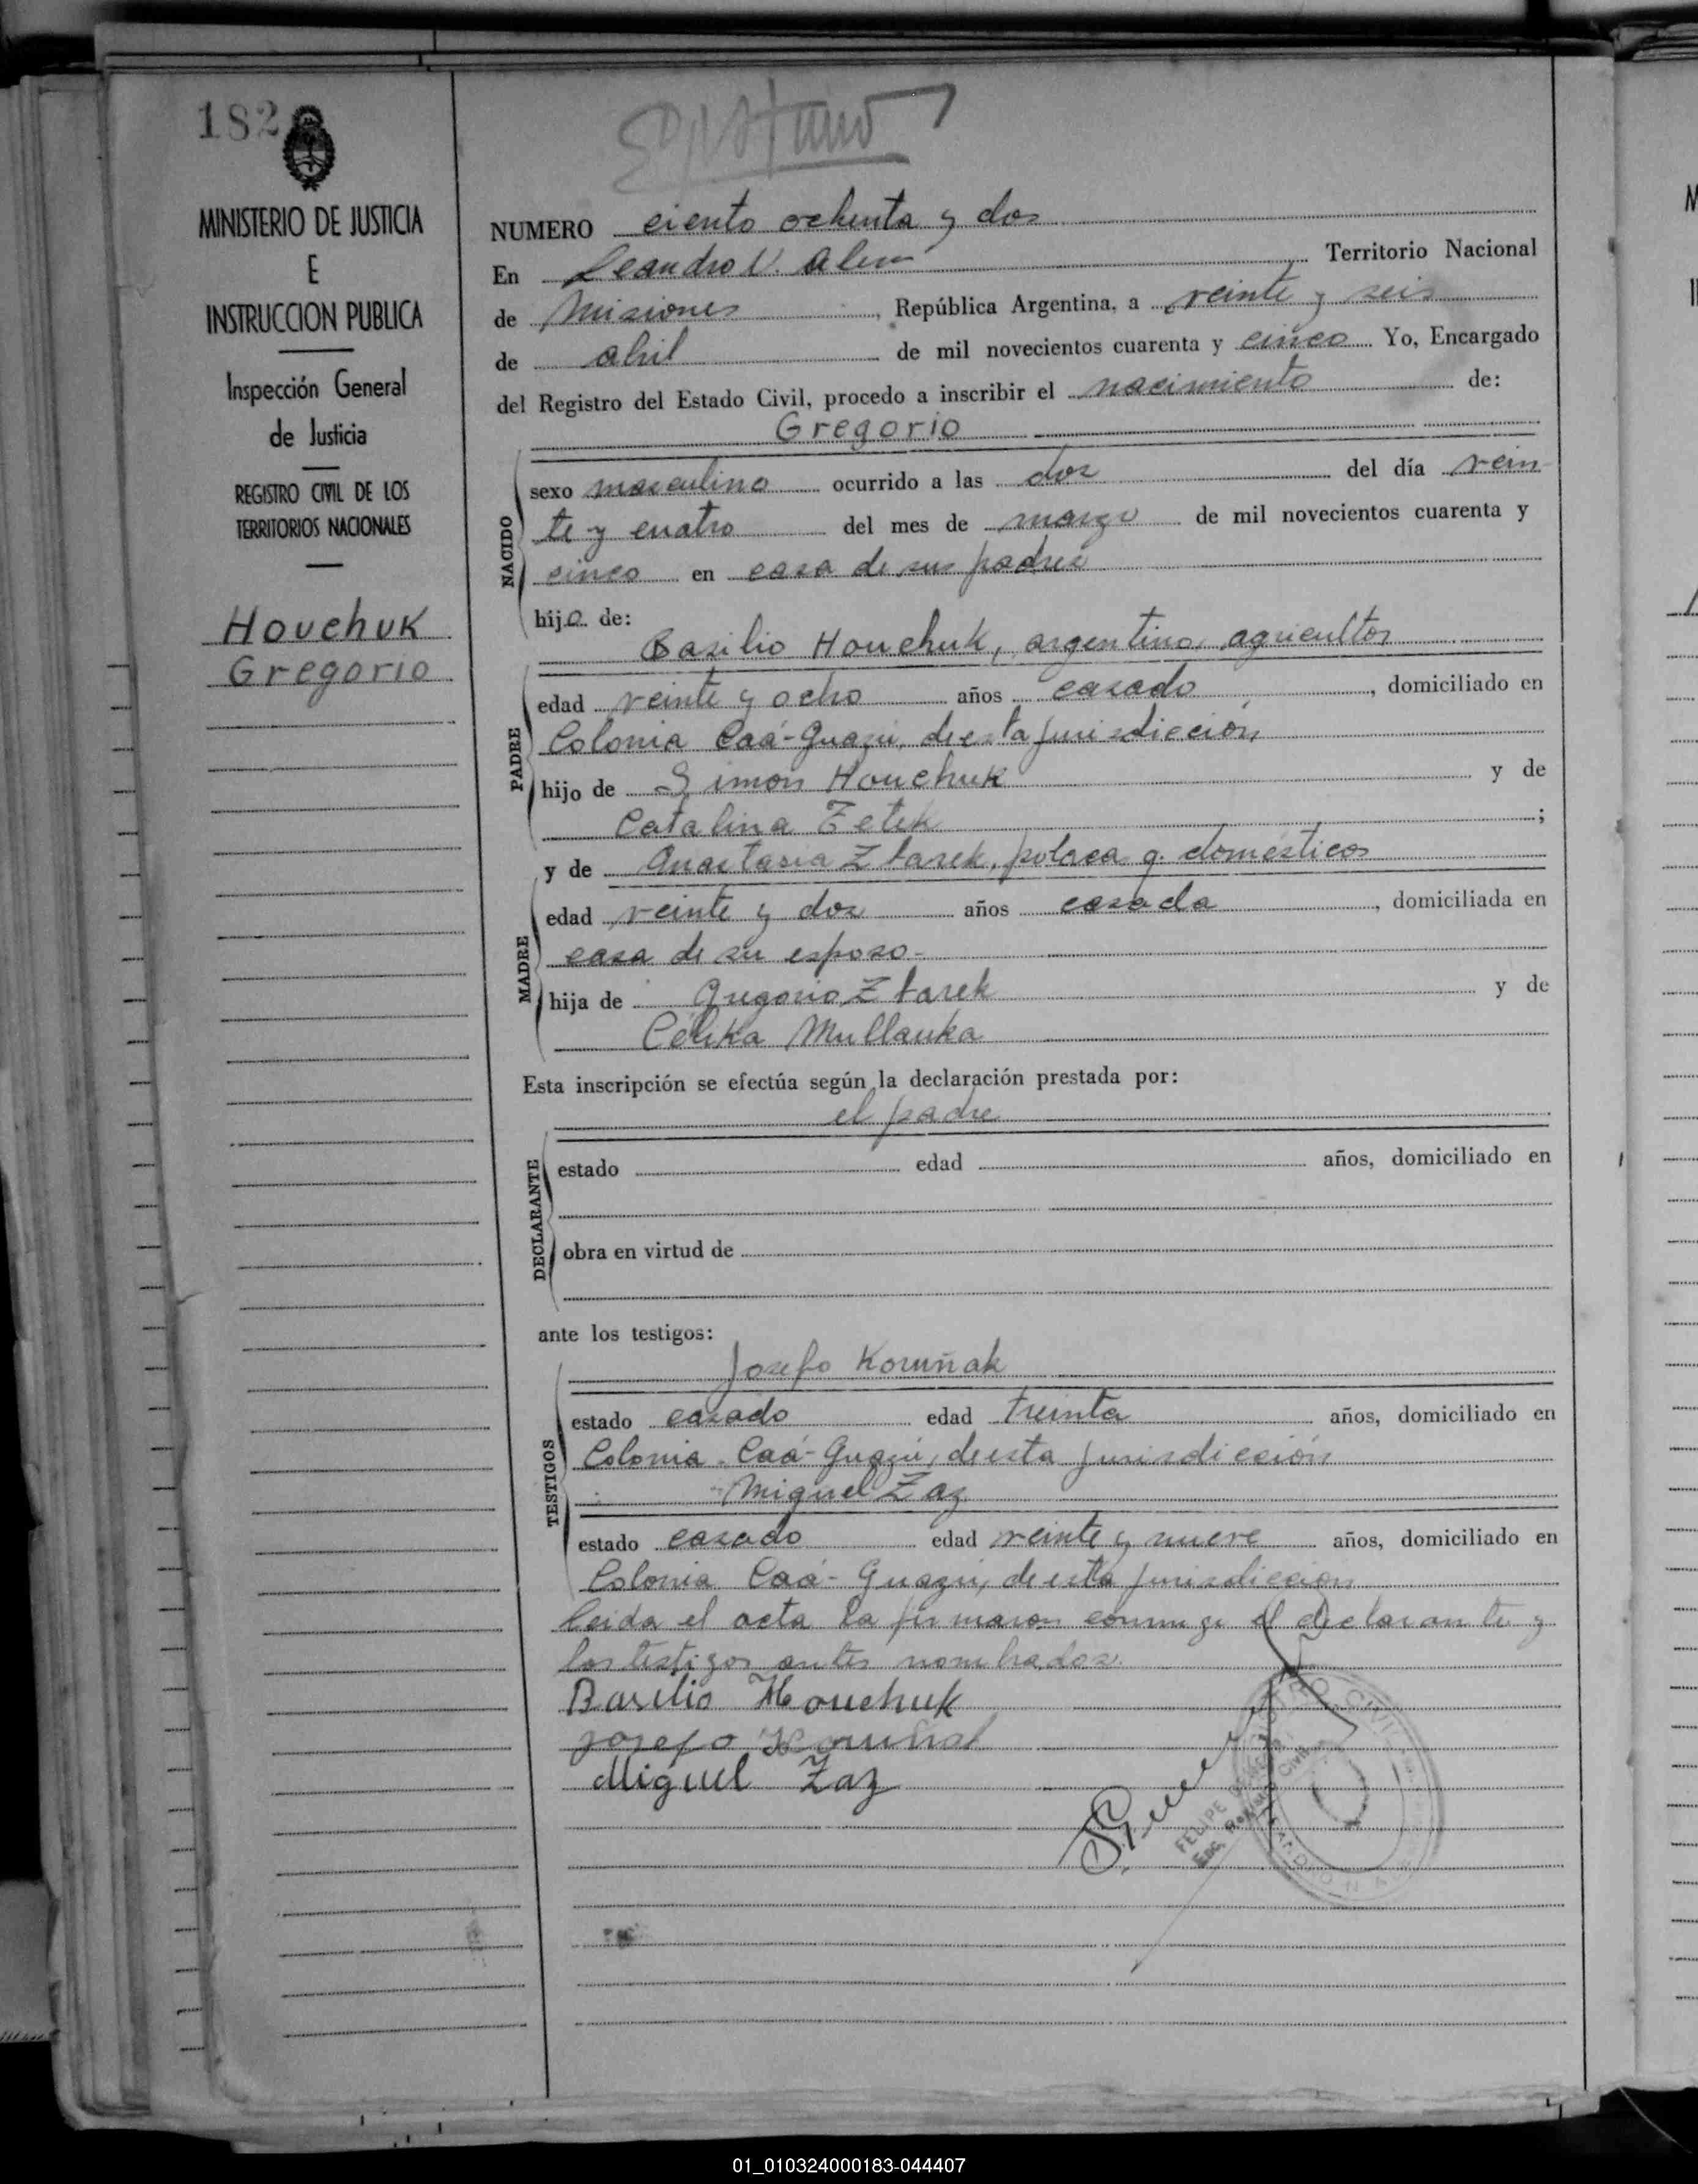 182
MINISTERIO DE JUSTICIA
E
INSTRUCCION PUBLICA
Inspección General
de Justicia
REGISTRO CIVIL DE LOS
TERRITORIOS NACIONALES
Houchuk
Gregorio
NUMERO ciento ochenta y dos
En Leandro N. Alem Territorio Nacional
de Misiones, República Argentina, a veinte y seis
de abril de mil novecientos cuarenta y cinco Yo, Encargado
del Registro del Estado Civil, procedo a inscribir el nacimiento de:
Gregorio
NACIDO
sexo masculino ocurrido a las dos del día vein
te y cuatro del mes de marzo de mil novecientos cuarenta y
cinco en casa de sus padres
hijo de:
Basilio Houchuk, argentino, agricultor
PADRE
edad veinte y ocho años casado, domiciliado en
Colonia Caá-Guazú, de esta jurisdicción
hijo de Simón Houchuk y de
Catalina Tetek;
y de Anastasia Ztasek, polaca q. domésticos
MADRE
edad veinte y dos años casada, domiciliada en
casa de su esposo-
hija de Gregorio Ztasek y de
Mullauka
Esta inscripción se efectúa según la declaración prestada por:
el padre
DECLARANTE
estado edad años, domiciliado en
obra en virtud de
ante los testigos:
Josefo Koruñak
TESTIGOS
estado casado edad treinta años, domiciliado en
Colonia Caá-Guazú, de esta jurisdicción
Miguel Zaz
estado casado edad veinte y nueve años, domiciliado en
Colonia Caá-Guazú, de esta jurisdicción
leida el acta la firmaron conmigo el declarante y
los testigos antes nombrados.
Basilio Houchuk
Josefo Koruñak
Miguel Zaz
FELIPE
Enc. Registro Civil
01_010324000183-044407